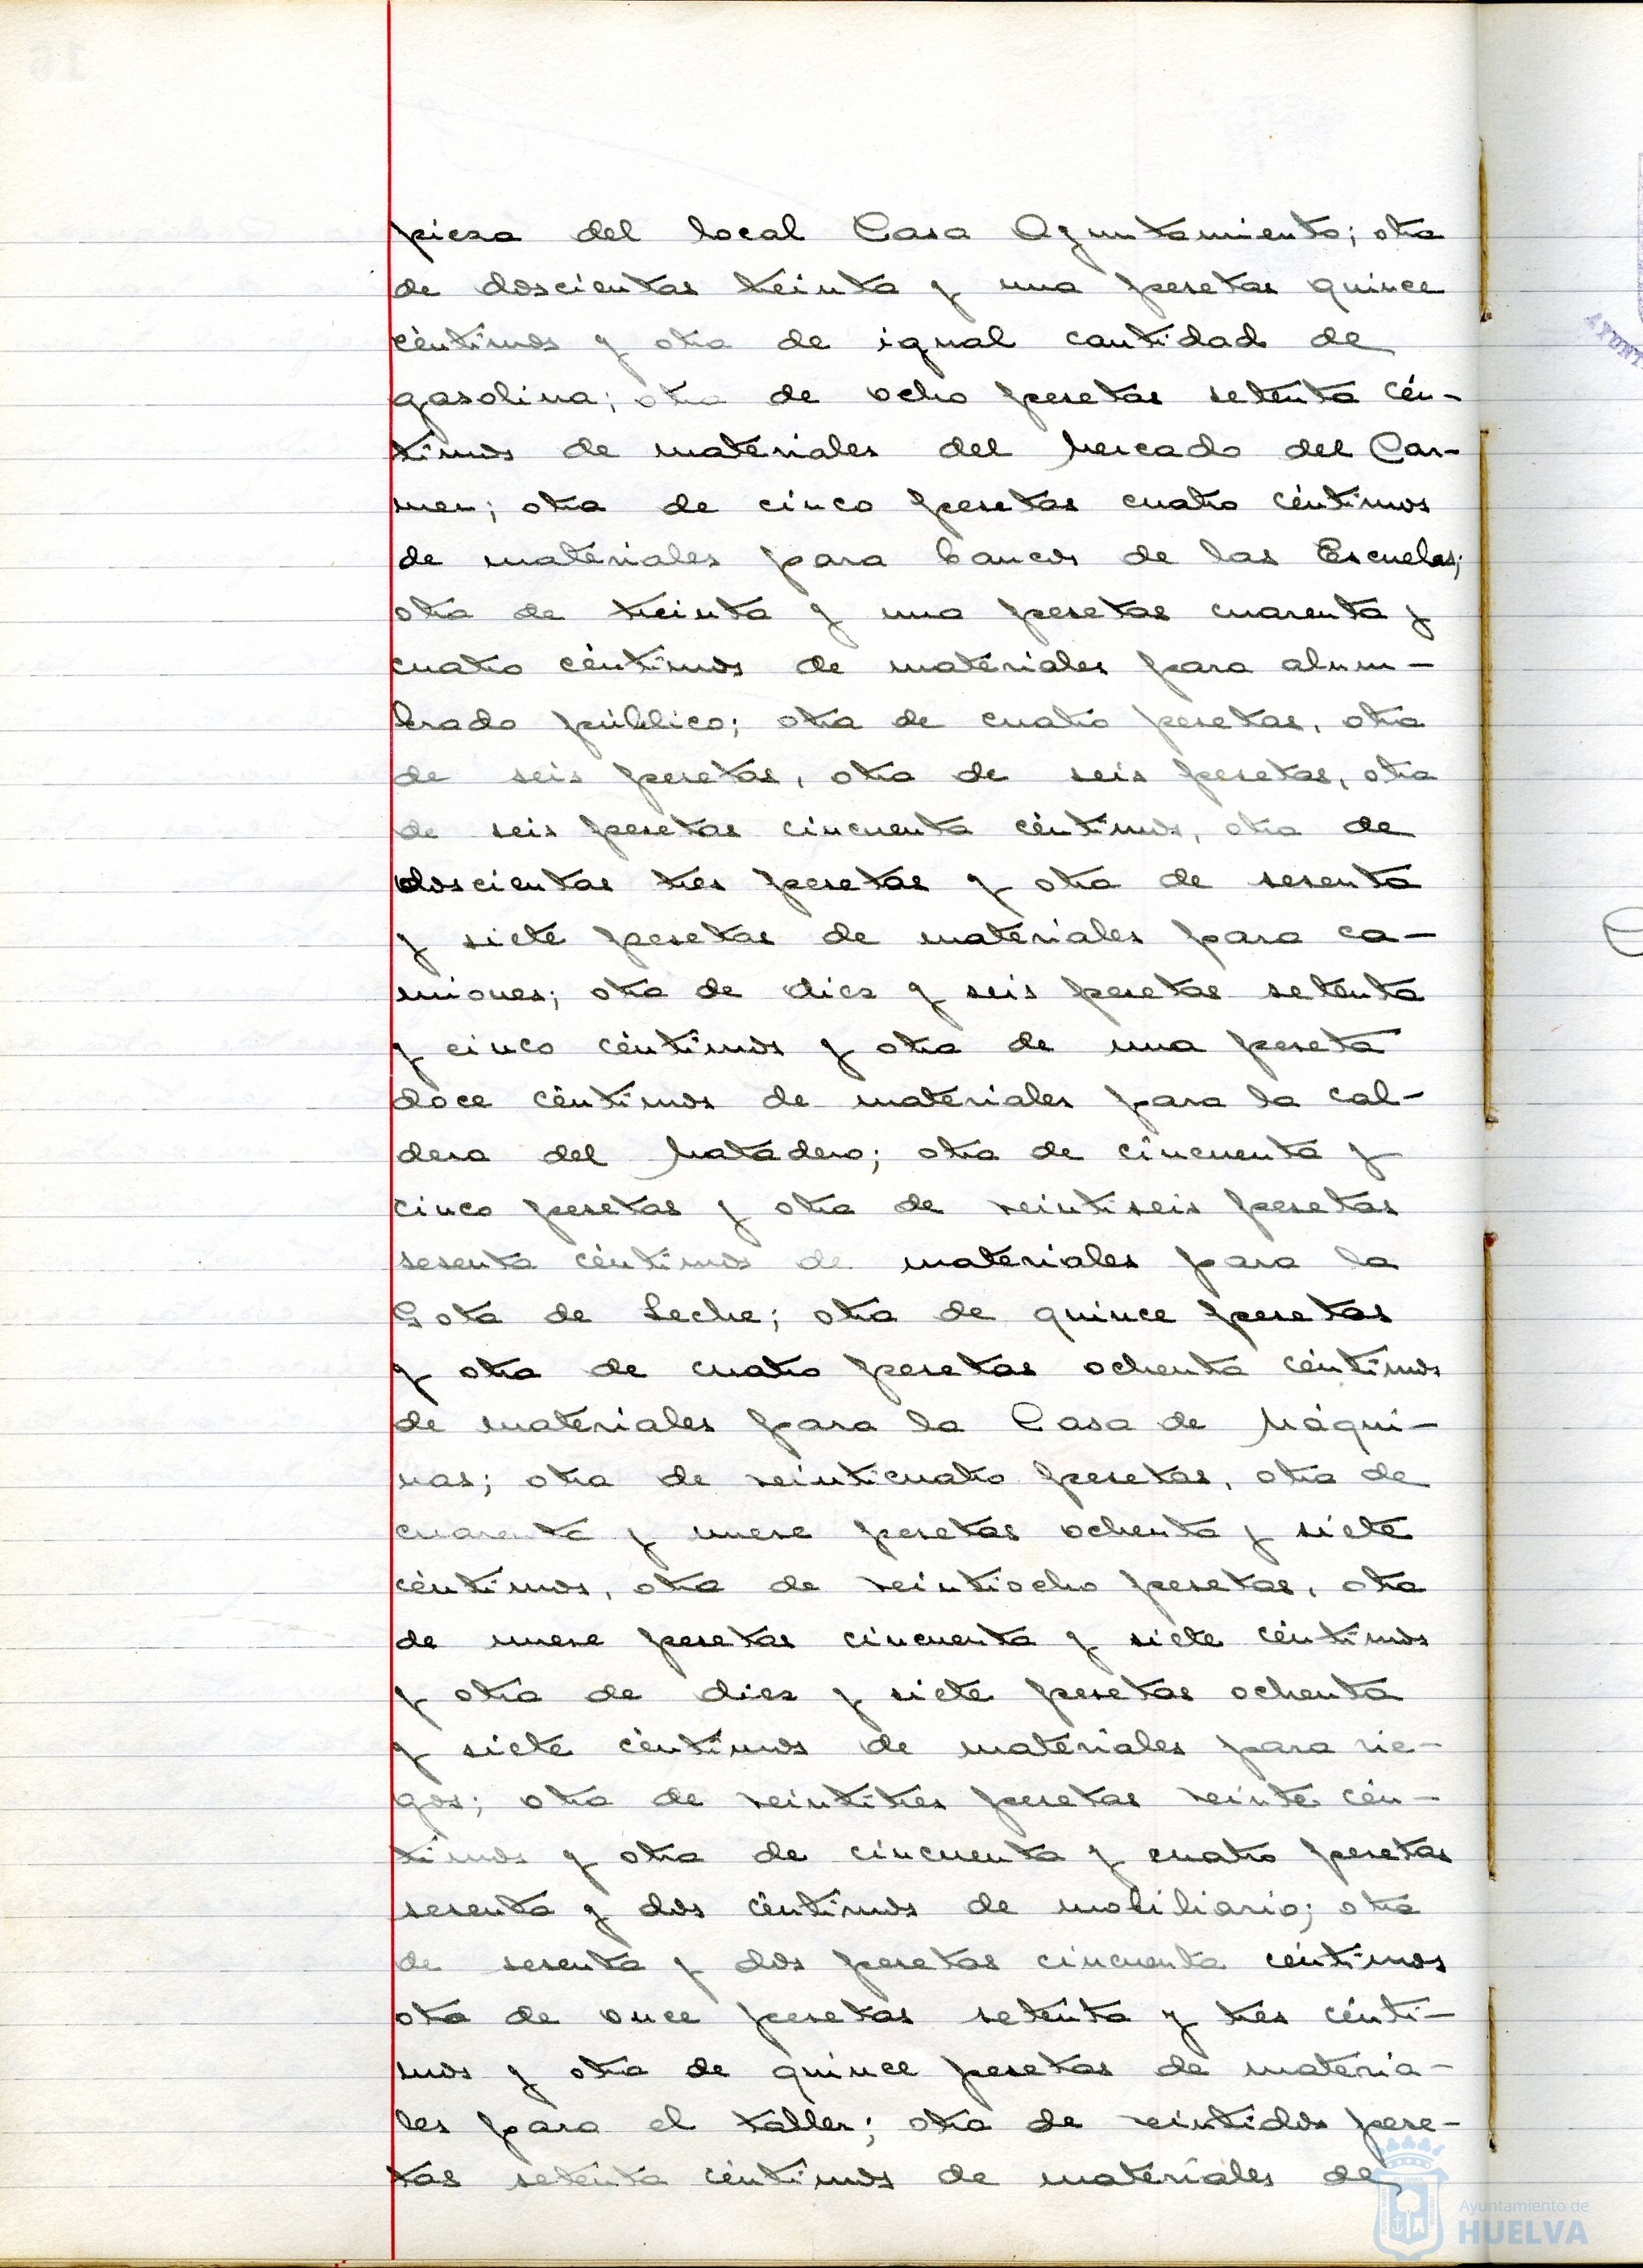 pieza del local Casa Ayuntamiento; otra
de doscientas treinta y una pesetas quince
céntimos y otra de igual cantidad de
gasolina; otra de ocho pesetas setenta cén-
timos de materiales del Mercado del Car-
men; otra de cinco pesetas cuatro céntimos
de materiales para bancos de las Escuelas;
otra de treinta y una pesetas cuarenta y
cuatro céntimos de materiales para alum-
brado público; otra de cuatro pesetas, otra
de seis pesetas, otra de seis pesetas, otra
de seis pesetas cincuenta céntimos, otra de
doscientas tres pesetas y otra de sesenta
y siete pesetas de materiales para ca-
miones; otra de diez y seis pesetas setenta
y cinco céntimos y otra de una peseta
doce céntimos de materiales para la cal-
dera del Matadero; otra de cincuenta y
cinco pesetas y otra de veintiseis pesetas
sesenta céntimos de materiales para la
Gota de Leche; otra de quince pesetas
y otra de cuatro pesetas ochenta céntimos
de materiales para la Casa de Máqui-
nas; otra de veinticuatro pesetas, otra de
cuarenta y nueve pesetas ochenta y siete
céntimos, otra de veintiocho pesetas, otra
de nueve pesetas cincuenta y siete céntimos
y otra de diez y siete pesetas ochenta
y siete céntimos de materiales para rie-
gos; otra de veintitres pesetas veinte cén-
timos y otra de cincuenta y cuatro pesetas
sesenta y dos céntimos de mobiliario; otra
de sesenta y dos pesetas cincuenta céntimos
otra de once pesetas setenta y tres cénti-
mos y otra de quince pesetas de materia-
les para el taller; otra de veintidos pese-
tas setenta céntimos de materiales de
AYUNT
Ayuntamiento de
HUELVA